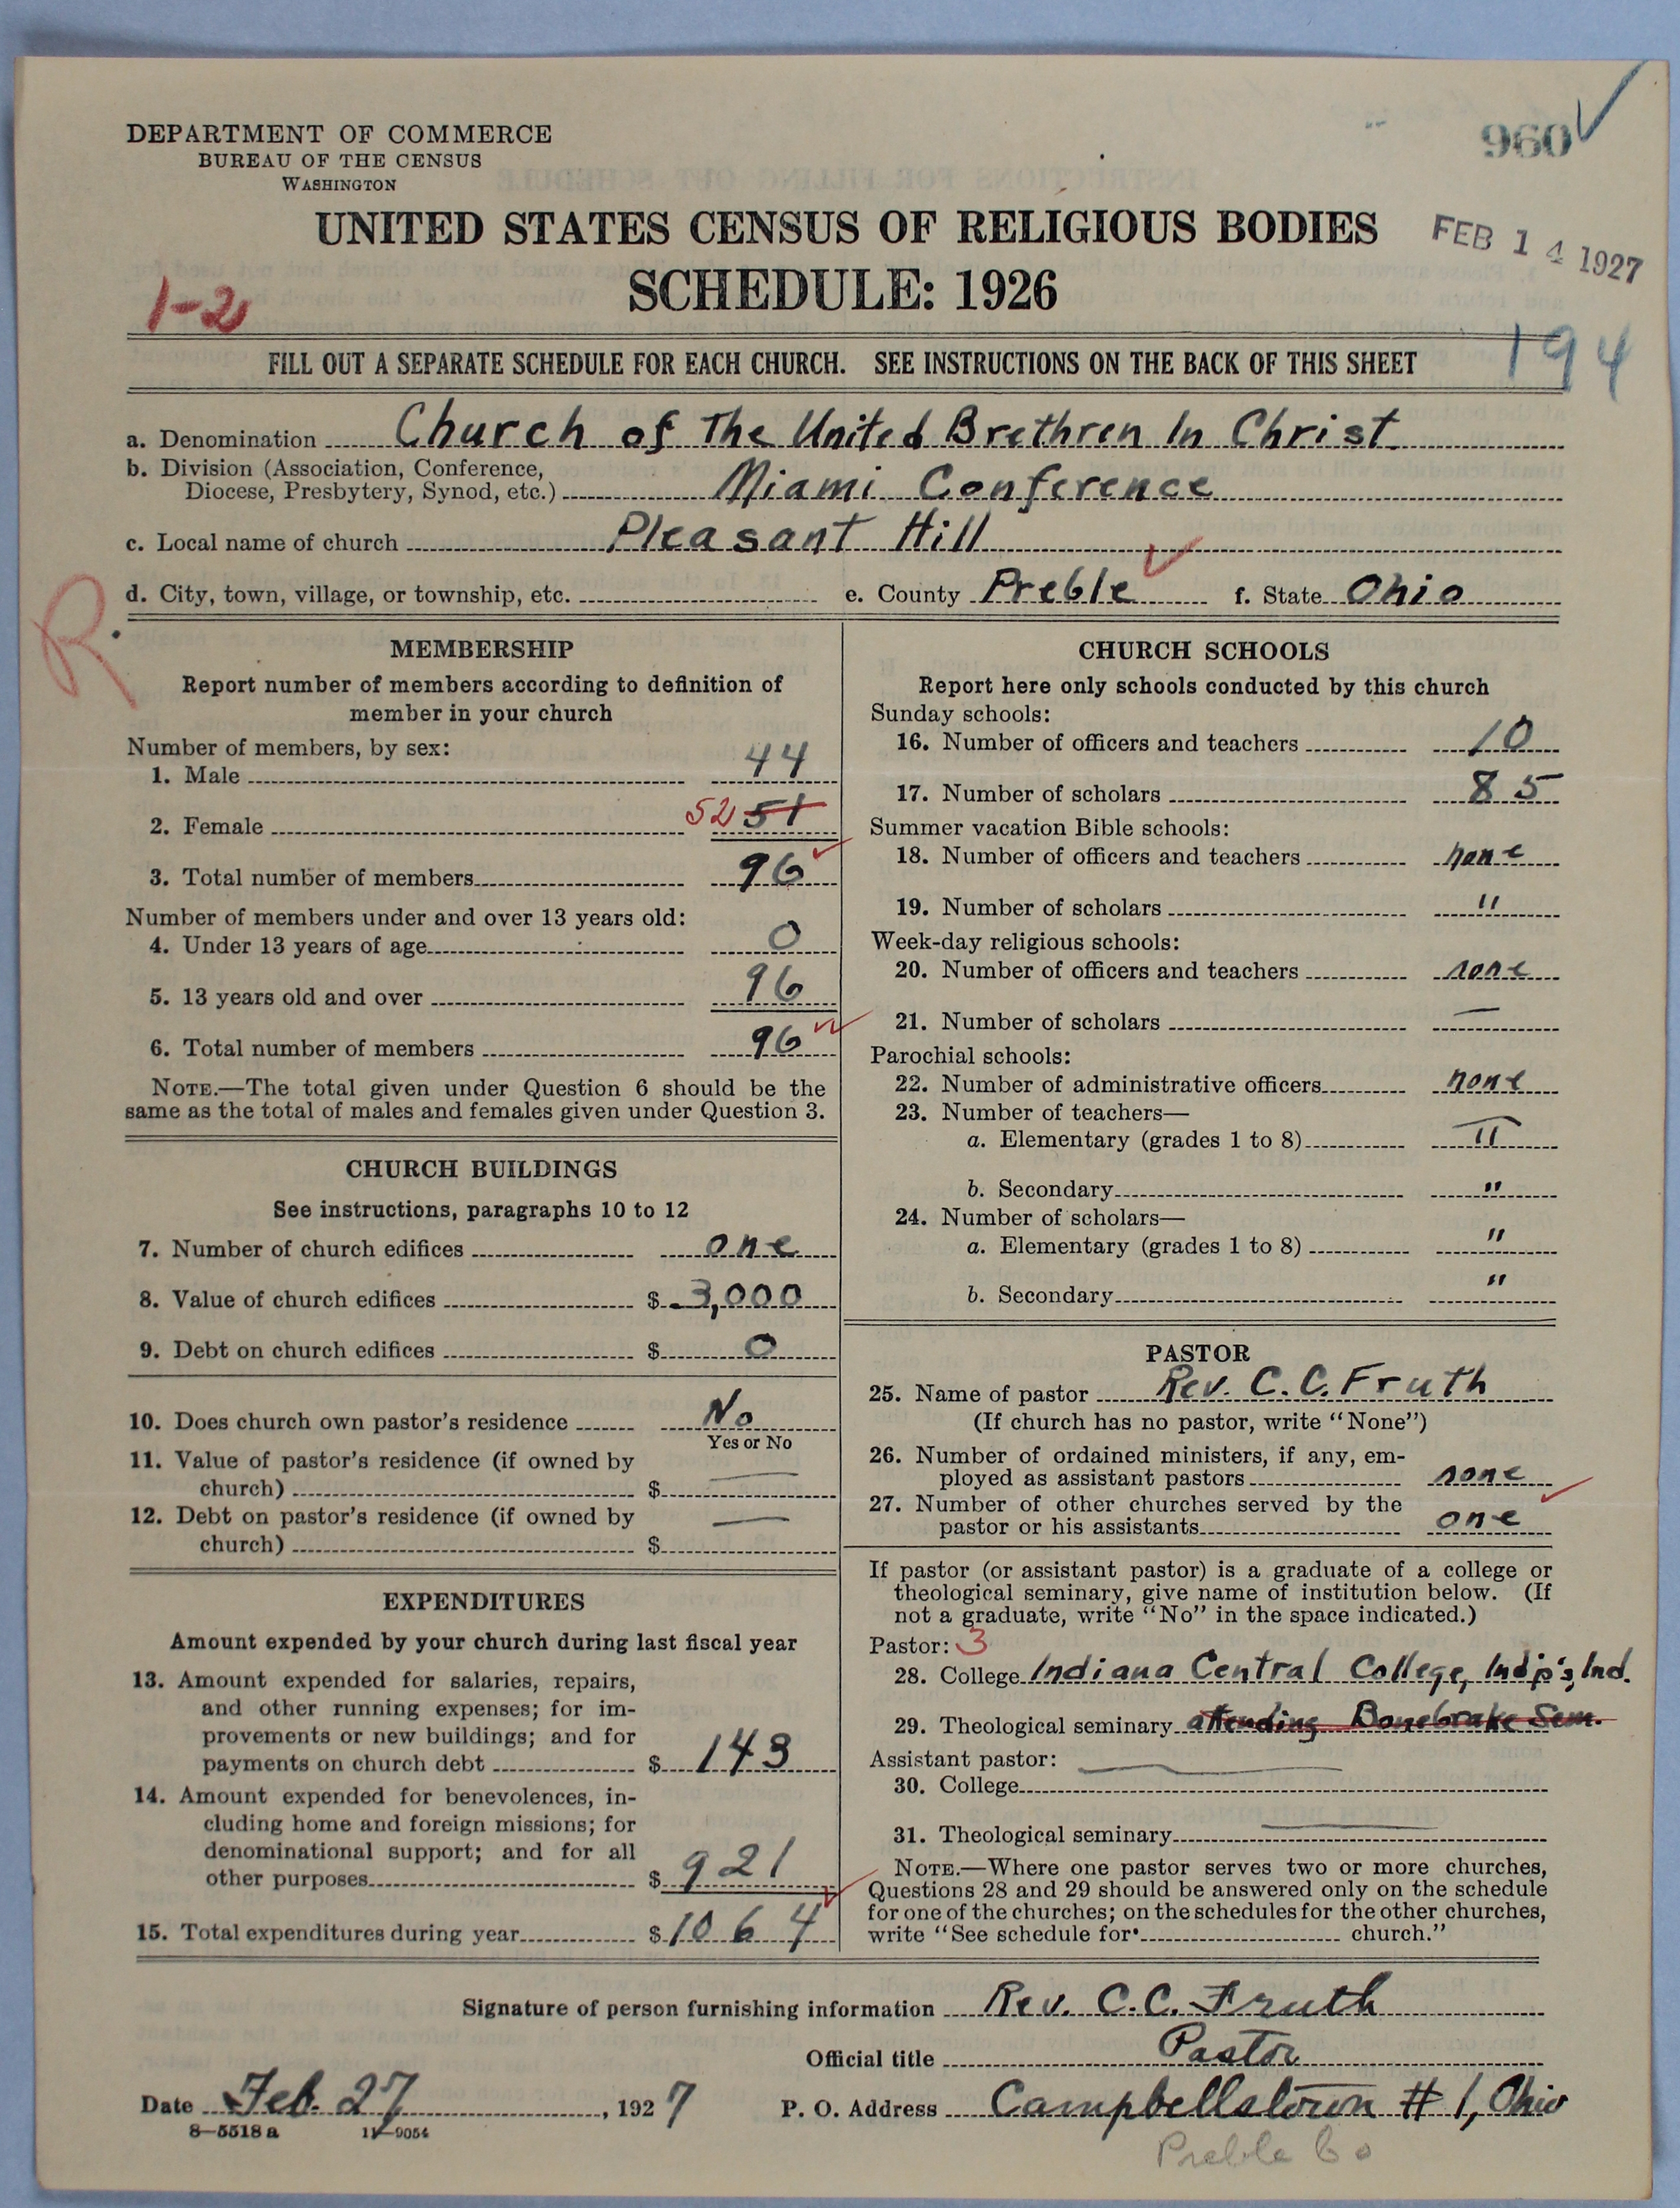 960
DEPARTMENT OF COMMERCE
BUREAU OF THE CENSUS
WASHINGTON
UNITED STATES CENSUS OF RELIGIOUS BODIES
FEB 14 1927
SCHEDULE: 1926
1-2
194
FILL OUT A SEPARATE SCHEDULE FOR EACH CHURCH. SEE INSTRUCTIONS ON THE BACK OF THIS SHEET
a. Denomination Church of The United Brethren In Christ
b. Division (Association, Conference,
Diocese, Presbytery, Synod, etc.) Miami Conference
c. Local name of church Pleasant Hill
d. City, town, village, or township, etc. e. County Preble f. State Ohio
R.
MEMBERSHIP
Report number of members according to definition of
member in your church
Number of members, by sex:
1. Male 44
2. Female 52 51
3. Total number of members 96
Number of members under and over 13 years old:
4. Under 13 years of age 0
5. 13 years old and over 96
6. Total number of members 96
NOTE.—The total given under Question 6 should be the
same as the total of males and females given under Question 3.
CHURCH BUILDINGS
See instructions, paragraphs 10 to 12
7. Number of church edifices one
8. Value of church edifices $ 3,000
9. Debt on church edifices $ 0
10. Does church own pastor's residence No
Yes or No
11. Value of pastor's residence (if owned by
church) $ —
12. Debt on pastor's residence (if owned by
church) $ —
EXPENDITURES
Amount expended by your church during last fiscal year
13. Amount expended for salaries, repairs,
and other running expenses; for im-
provements or new buildings; and for
payments on church debt $ 143
14. Amount expended for benevolences, in-
cluding home and foreign missions; for
denominational support; and for all
other purposes $ 921
15. Total expenditures during year $ 1064
CHURCH SCHOOLS
Report here only schools conducted by this church
Sunday schools:
16. Number of officers and teachers 10
17. Number of scholars 85
Summer vacation Bible schools:
18. Number of officers and teachers none
19. Number of scholars "
Week-day religious schools:
20. Number of officers and teachers none
21. Number of scholars —
Parochial schools:
22. Number of administrative officers none
23. Number of teachers—
a. Elementary (grades 1 to 8) "
b. Secondary "
24. Number of scholars—
a. Elementary (grades 1 to 8) "
b. Secondary "
PASTOR
25. Name of pastor Rev. C. C. Fruth
(If church has no pastor, write "None")
26. Number of ordained ministers, if any, em-
ployed as assistant pastors none
27. Number of other churches served by the
pastor or his assistants one
If pastor (or assistant pastor) is a graduate of a college or
theological seminary, give name of institution below. (If
not a graduate, write "No" in the space indicated.)
Pastor: 3
28. College Indiana Central College, Ind'p's, Ind.
29. Theological seminary attending Bonebrake Sem.
Assistant pastor: —
30. College
31. Theological seminary —
NOTE.—Where one pastor serves two or more churches,
Questions 28 and 29 should be answered only on the schedule
for one of the churches; on the schedules for the other churches,
write "See schedule for church."
Signature of person furnishing information Rev. C.C. Fruth
Official title Pastor
Date Feb. 27, 1927 P. O. Address Campbellstown # 1, Ohio
8—5518 a 11—9054
Preble Co